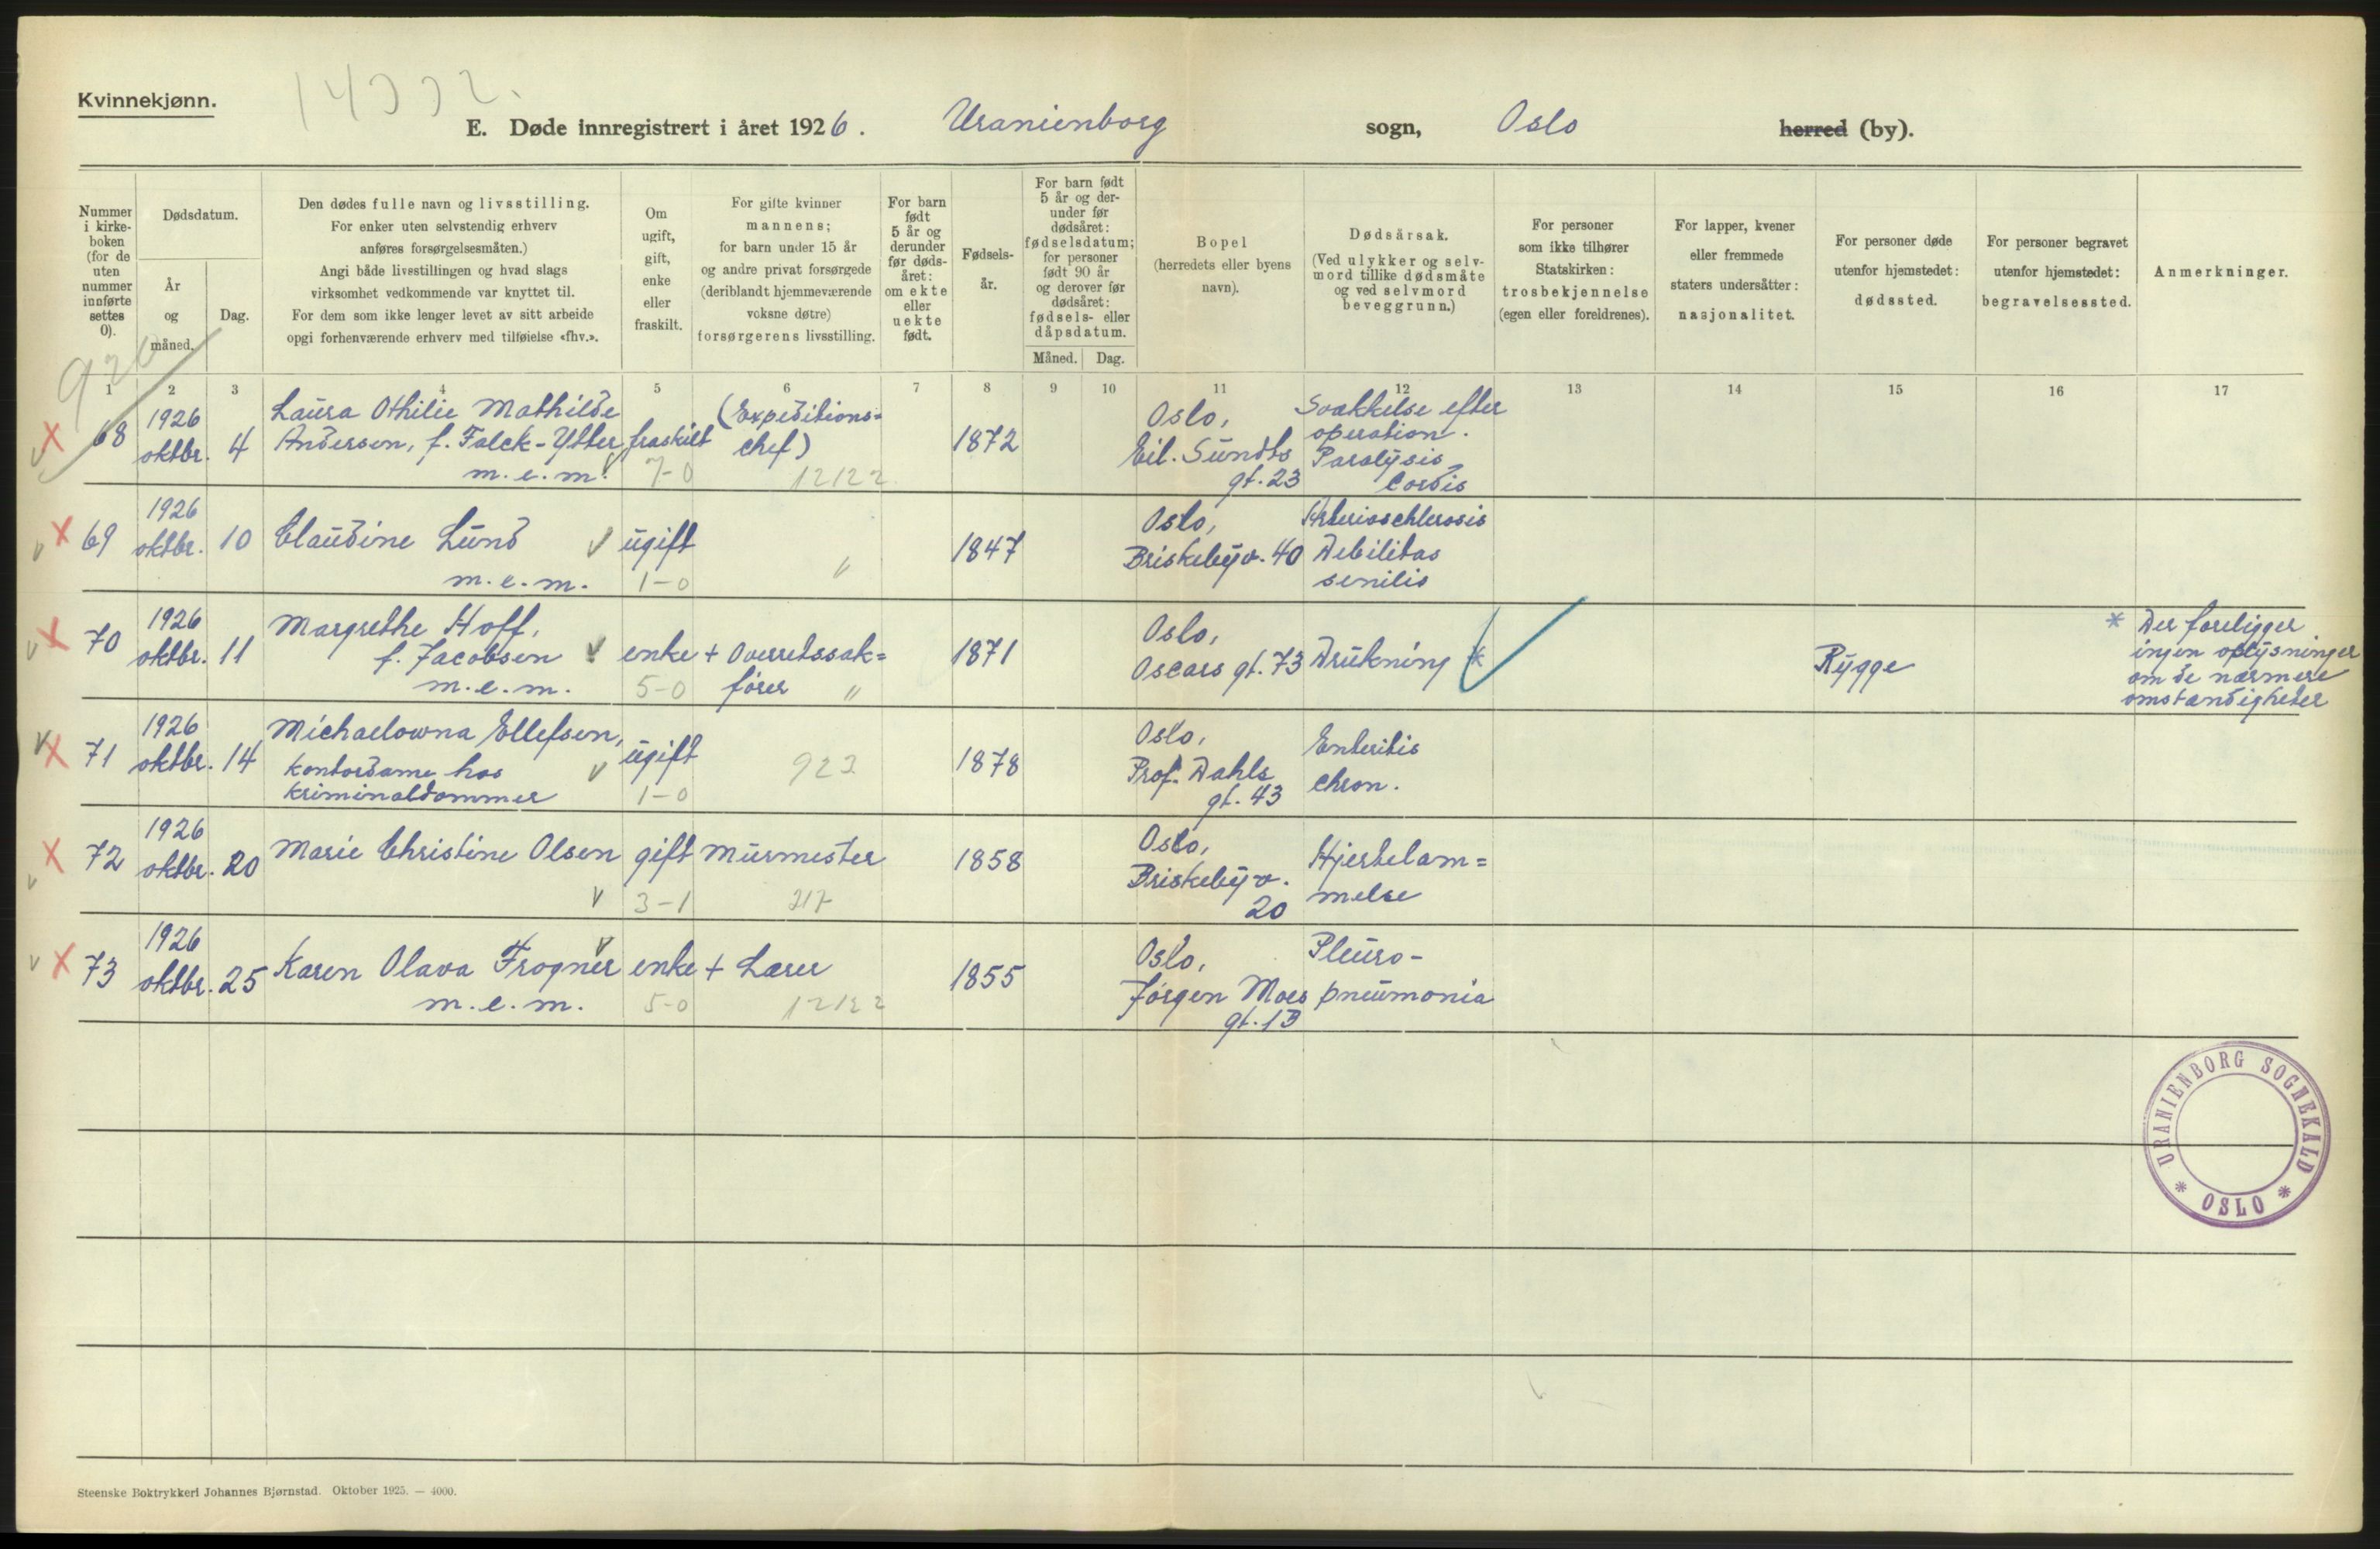 Kvinnekjønn.
E. Døde innregistrert i året 1926. Uranienborg sogn, Oslo herred (by).
Nummer i kirke-boken (for de uten nummer innførte settes 0).
Dødsdatum.
År og måned.
Dag.
Den dødes fulle navn og livsstilling.
For enker uten selvstendig erhverv
anføres forsørgelsesmåten.)
Angi både livsstillingen og hvad slags
virksomhet vedkommende var knyttet til.
For dem som ikke lenger levet av sitt arbeide
opgi forhenværende erhverv med tilføielse «fhv.».
Om ugift, gift, enke eller fraskilt.
For gifte kvinner
mannens;
for barn under 15 år
og andre privat forsørgede
(deriblandt hjemmeværende
voksne døtre)
forsørgerens livsstilling.
For barn født 5 år og derunder før døds-året: om ekte eller uekte født.
Fødsels-år.
For barn født 5 år og der-under før dødsåret: fødselsdatum; for personer født 90 år og derover før dødsåret: fødsels- eller dåpsdatum.
Måned. Dag.
Bopel
(herredets eller byens
navn).
Dødsårsak.
(Ved ulykker og selv-
mord tillike dødsmåte
og ved selvmord
beveggrunn.)
For personer
som ikke tilhører
Statskirken:
trosbekjennelse
(egen eller foreldrenes).
For lapper, kvener
eller fremmede
staters undersåtter:
nasjonalitet.
For personer døde
utenfor hjemstedet:
dødssted.
For personer begravet
utenfor hjemstedet:
begravelsessted.
Anmerkninger.
1 2 3 4 5 6 7 8 9 10 11 12 13 14 15 16 17
68 1926 oktbr. 4 Laura Othilie Mathilde Andersen, f. Falck-Ytter m.e.m. fraskilt 7-0 (Expeditions=chef) 12122 1872 Oslo, Eil. Sundts gt. 23 Svækkelse efter operation. Paralysis Cordis
69 1926 oktbr. 10 Claudine Lund m.e.m. ugift 1-0 " 1847 Oslo, Briskebyv. 40 Arterioschlerosis Debilitas senilis
70 1926 oktbr. 11 Margrethe Hoff, f. Jacobsen m.e.m. enke 5-0 + Overretssak=fører " 1871 Oslo, Oscars gt. 73 Drukning * Rygge * Der foreligger ingen oplysninger om de nærmere omstændigheter
71 1926 oktbr. 14 Michaelowna Ellefsen, kontordame hos kriminaldommer ugift 1-0 923 1878 Oslo, Prof. Dahls gt. 43 Enteritis chron.
72 1926 oktbr. 20 Marie Christine Olsen gift 3-1 Murmester 217 1858 Oslo, Briskebyv. 20 Hjertelam=melse
73 1926 oktbr. 25 Karen Olava Frogner m.e.m. enke 5-0 + Lærer 12122 1855 Oslo, Jørgen Moes gt. 13 Pleuro-pneumonia
URANIENBORG SOGNEKALD * OSLO *
Steenske Boktrykkeri Johannes Bjørnstad. Oktober 1925. — 4000.